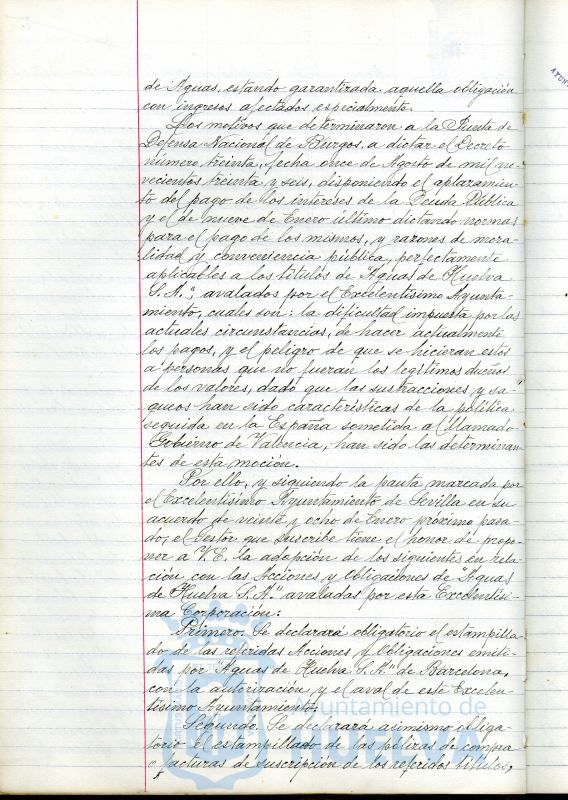 de Aguas, estando garantizada aquella obligación
con ingresos afectados especialmente.
Los motivos que determinaron a la Junta de
Defensa Nacional de Burgos, a dictar el Decreto
número treinta, fecha once de Agosto de mil no-
vecientos treinta y seis, disponiendo el aplazamien-
to del pago de los intereses de la Deuda Pública
y el de nueve de Enero último dictando normas
para el pago de los mismos, y razones de mora-
lidad y conveniencia pública, perfectamente
aplicables a los títulos de "Aguas de Huelva
S.A.", avalados por el Excelentísimo Ayunta-
miento, cuales son: la dificultad impuesta por las
actuales circunstancias, de hacer actualmente
los pagos, y el peligro de que se hicieran estos
a personas que no fueran los legítimos dueños
de los valores, dado que las sustracciones y sa-
queos han sido características de la política
seguida en la España sometida al llamado
Gobierno de Valencia, han sido las determinan-
tes de esta moción.
Por ello, y siguiendo la pauta marcada por
el Excelentísimo Ayuntamiento de Sevilla en su
acuerdo de veinte y ocho de Enero próximo pasa-
do, el Gestor que suscribe tiene el honor de propo-
ner a V.E. la adopción de los siguientes en rela-
ción con las Acciones y Obligaciones de "Aguas
de Huelva S.A." avaladas por esta Excelentísi-
ma Corporación:
Primero. Se declarará obligatorio el estampilla-
do de las referidas Acciones y Obligaciones emiti-
das por "Aguas de Huelva S.A." de Barcelona,
con la autorización y el aval de este Excelen-
tísimo Ayuntamiento.
Segundo. Se declarará asimismo obliga-
torio el estampillado de las pólizas de compra
o facturas de suscripción de los referidos títulos,
Ayuntamiento de
HUELVA